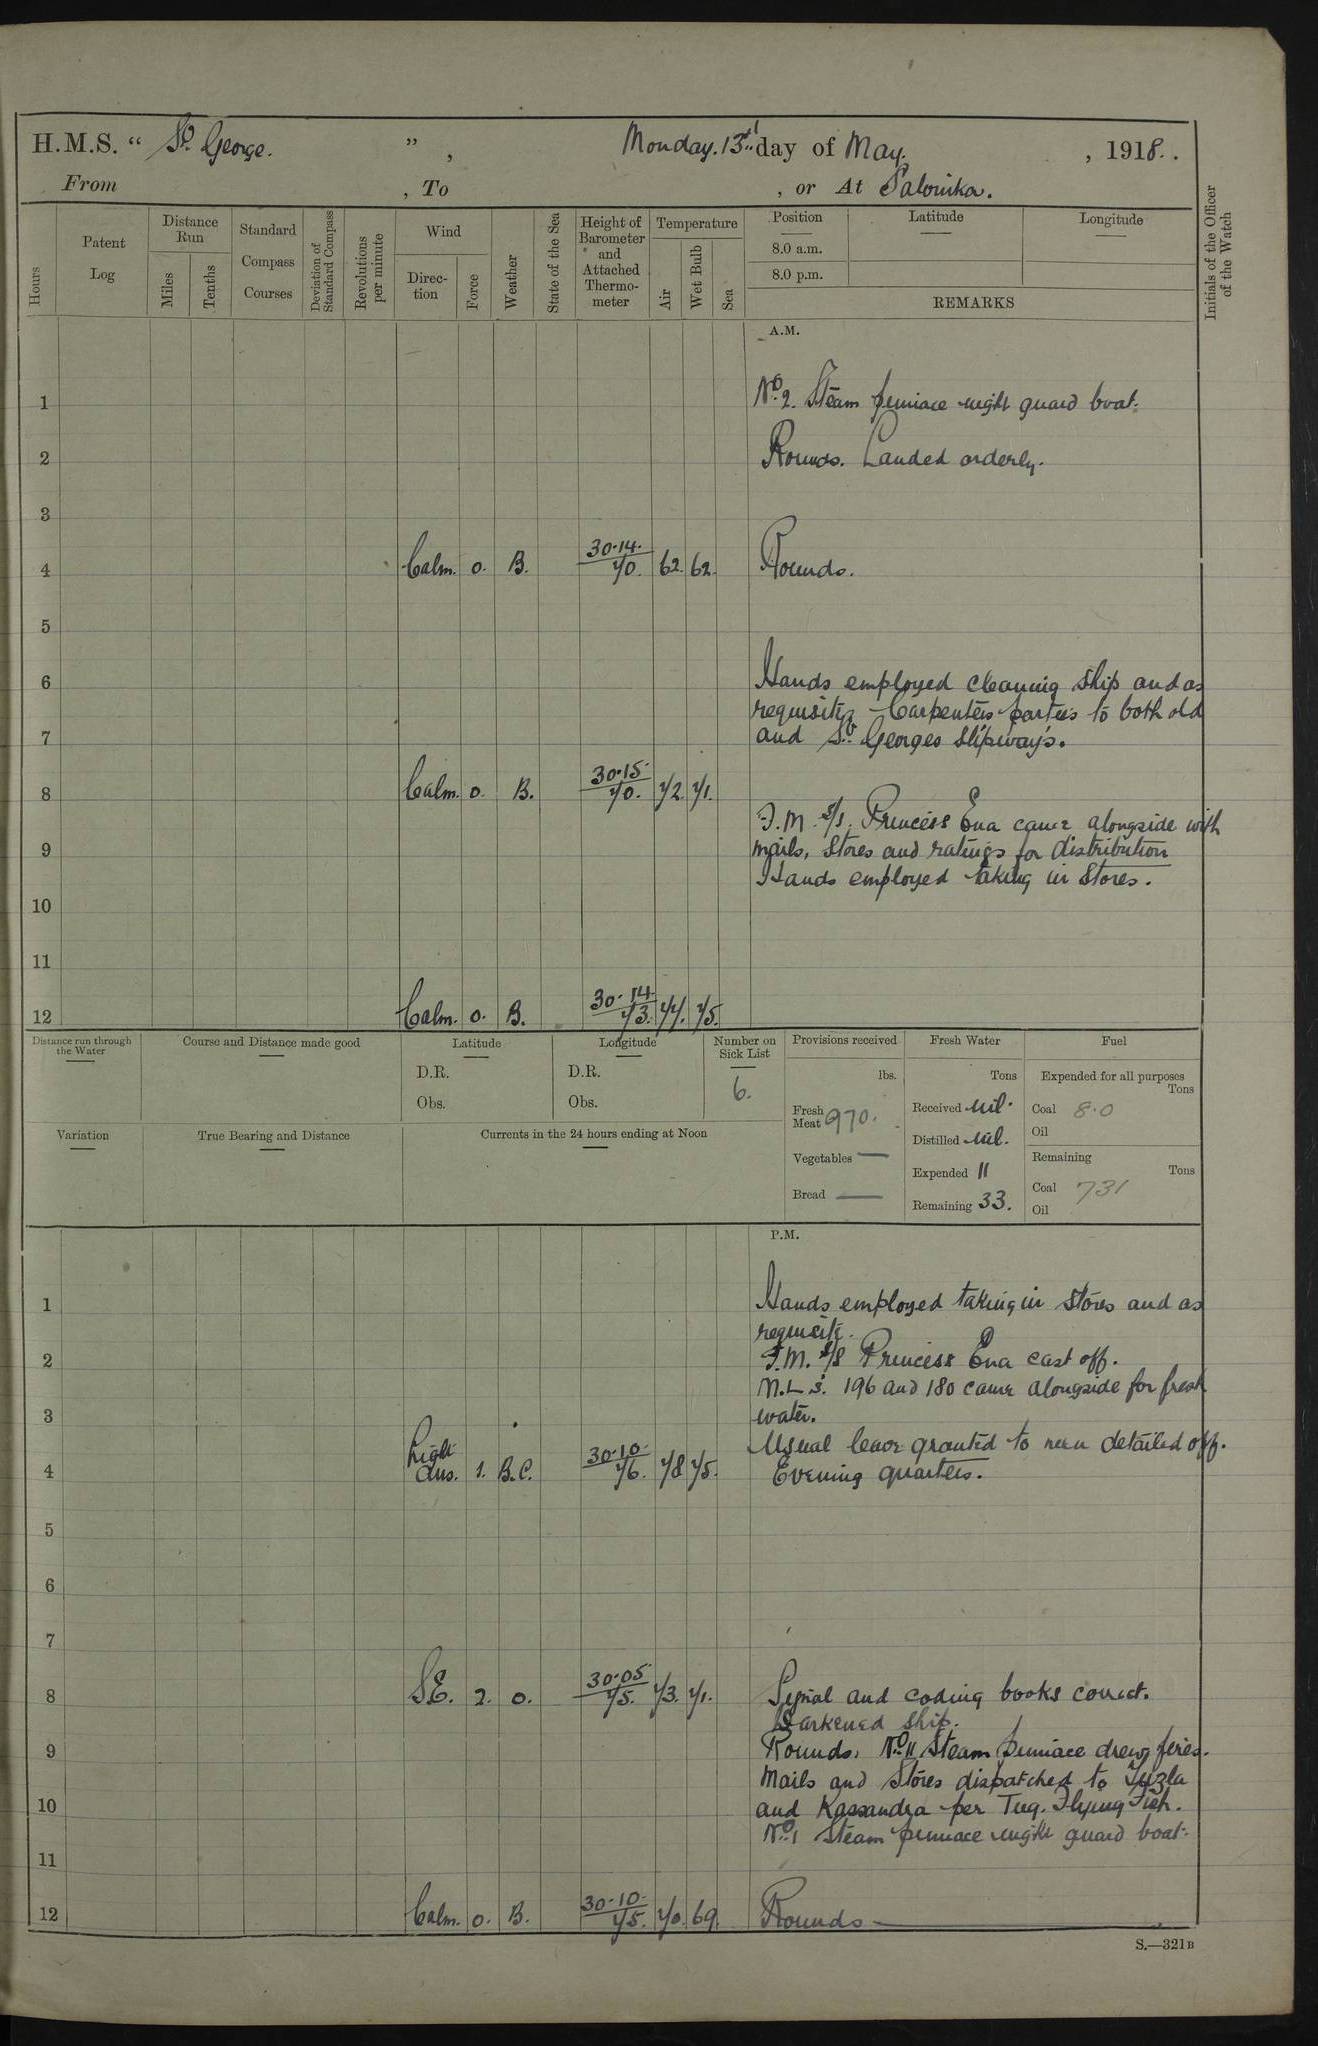 H.M.S. “ St. George. ” , Monday. 13th day of May. , 1918. .
From , To , or At Salonika.
Hours
Patent Log
Distance Run
Miles
Tenths
Standard Compass Courses
Deviation of Standard Compass
Revolutions per minute
Wind
Direction
Force
Weather
State of the Sea
Height of Barometer and Attached Thermometer
Temperature
Air
Wet Bulb
Sea
Position
8.0 a.m.
8.0 p.m.
Latitude
Longitude
REMARKS
Initials of the Officer of the Watch
A.M.
1 No. 2. Steam pinnace night guard boat.
2 Rounds. Landed orderly.
3
4 Calm. 0. B. 30.14. 70. 62. 62. Rounds.
5
6 Hands employed cleaning ship and as
requisite. Carpenters parties to both old
7 and St. Georges slipways.
8 Calm. 0. B. 30.15. 70. 72. 71.
F.M. S/S. Princess Ena came alongside with
9 mails, stores and ratings for distribution
Hands employed taking in stores.
10
11
12 Calm. 0. B. 30.14. 73. 77. 75.
Distance run through the Water
Course and Distance made good
Latitude
D.R.
Obs.
Longitude
D.R.
Obs.
Number on Sick List
6.
Provisions received
lbs.
Fresh Meat 970.
Vegetables —
Bread —
Fresh Water
Tons
Received nil.
Distilled nil.
Expended 11
Remaining 33.
Fuel
Expended for all purposes
Tons
Coal 8.0
Oil
Remaining
Tons
Coal 731
Oil
Variation
True Bearing and Distance
Currents in the 24 hours ending at Noon
P.M.
1 Hands employed taking in stores and as
requisite.
2 F.M. S/S Princess Ena cast off.
M.L.s. 196 and 180 came alongside for fresh
3 water.
Usual leave granted to men detailed off.
4 Light airs. 1. B.C. 30.10. 76. 78 75. Evening quarters.
5
6
7
8 S.E. 2. 0. 30.05. 75. 73. 71. Signal and coding books correct.
Darkened ship.
9 Rounds. No. 11 Steam pinnace drew fires.
Mails and stores dispatched to Tuzla
10 and Kassandra per Tug. Flying Fish.
No. 1 Steam pinnace night guard boat.
11
12 Calm. 0. B. 30.10. 75. 70. 69. Rounds
S.—321B